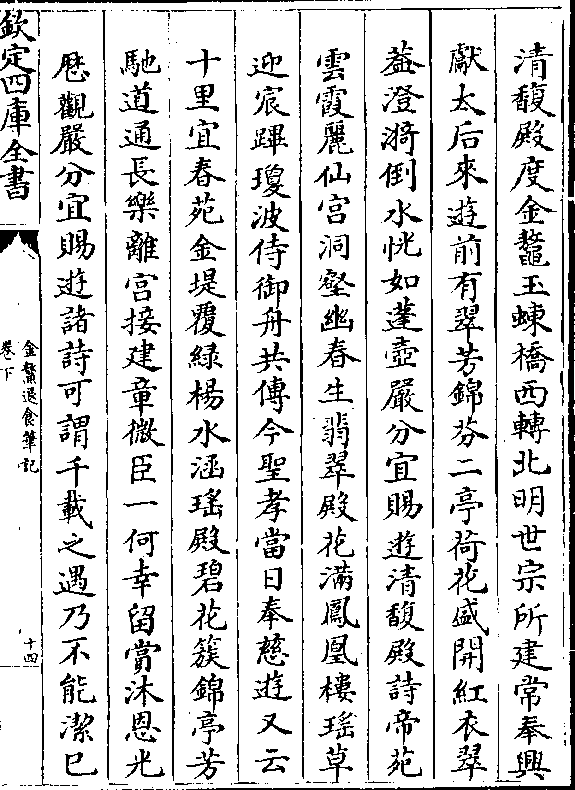 清馥殿度金鰲玉蝀橋西轉北明世宗所建常奉興
獻太后來遊前有翠芳錦芬二亭荷花盛開紅衣翠
葢澄漪倒水恍如蓬壺嚴分宜賜遊清馥殿詩帝苑
雲霞麗仙宫洞壑幽春生翡翠殿花滿鳳凰樓瑶草
迎宸蹕瓊波侍御舟共傳今聖孝當日奉慈遊又云
十里宜春苑金堤覆緑楊水涵瑶殿碧花簇錦亭芳
馳道通長樂離宫接建章微臣一何幸留賞沐恩光
厯觀嚴分宜賜遊諸詩可謂千載之遇乃不能潔已
欽定四庫全書
金鰲退食筆記
卷下
十四